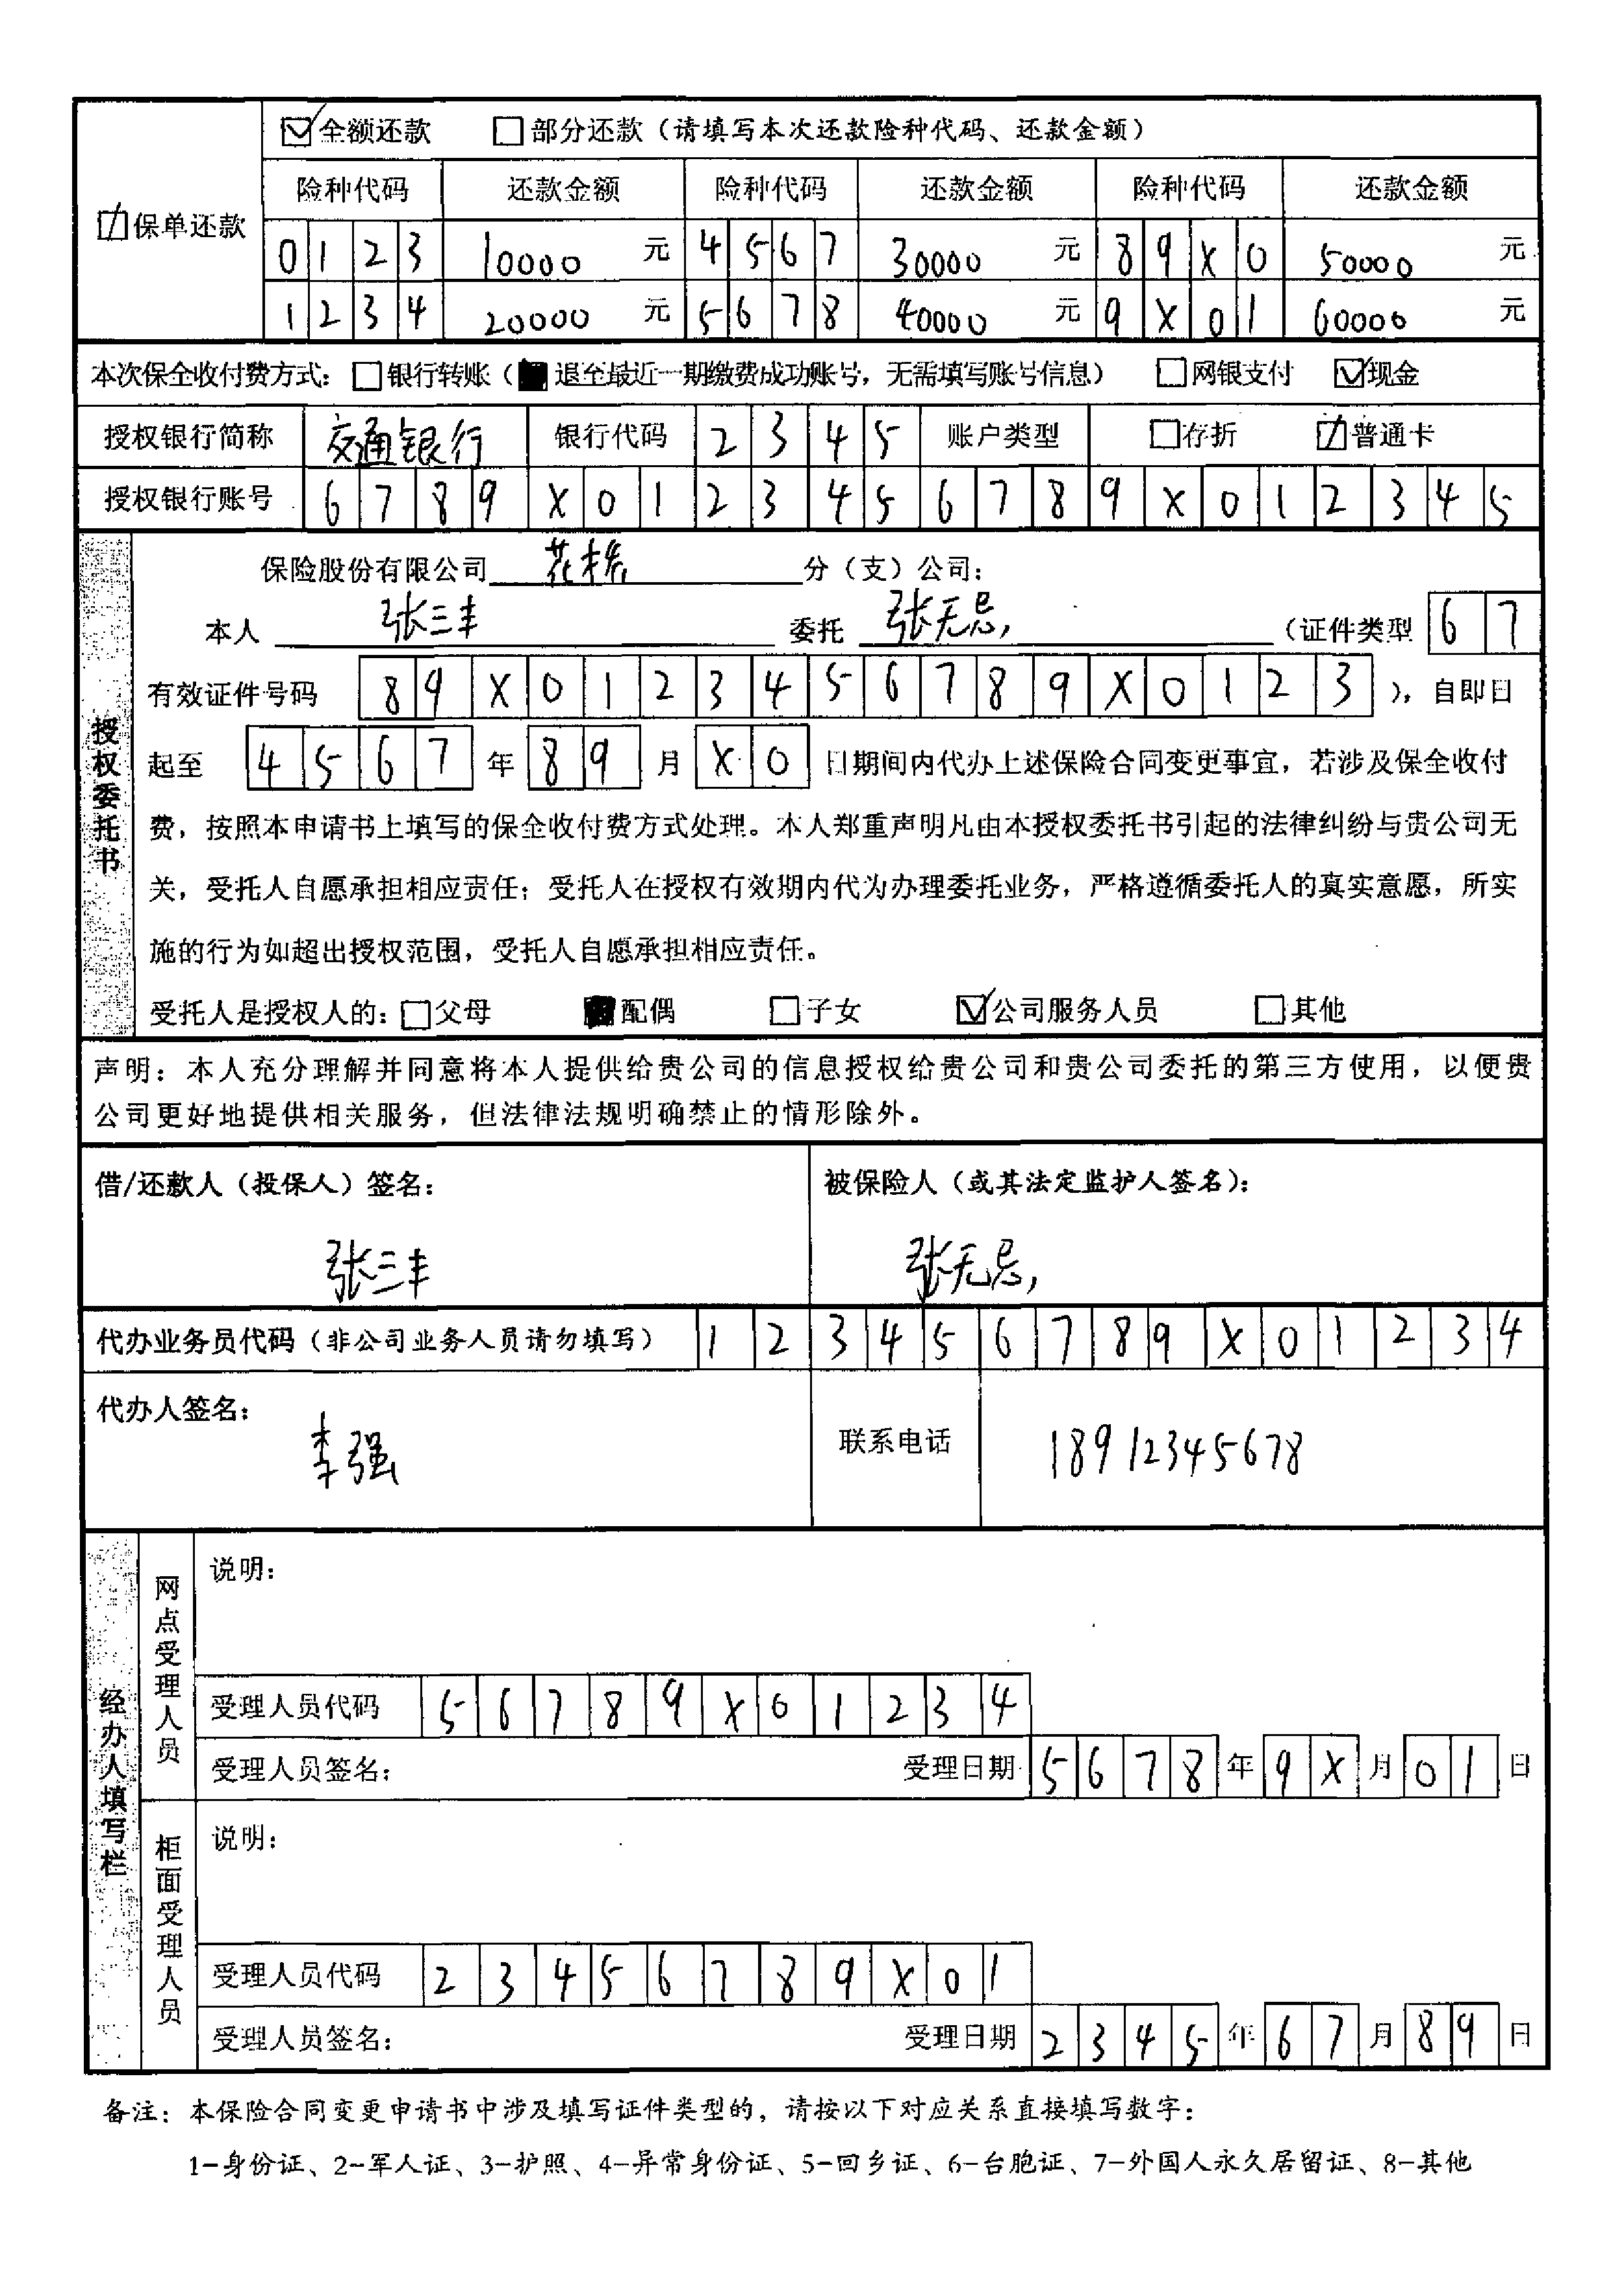 ☑全额还款 □部分还款（请填写本次还款险种代码、还款金额）
☑保单还款
险种代码 还款金额 险种代码 还款金额 险种代码 还款金额
0123 10000 元 4567 30000 元 89X0 50000 元
1234 20000 元 5678 40000 元 9X01 60000 元
本次保全收付费方式：□银行转账（■退至最近一期缴费成功账号，无需填写账号信息） □网银支付 ☑现金
授权银行简称 交通银行 银行代码 2345 账户类型 □存折 ☑普通卡
授权银行账号 6789X0123456789X012345
授权委托书
保险股份有限公司 花桥 分（支）公司：
本人 张三丰 委托 张无忌，（证件类型 67
有效证件号码 89X0123456789X0123 ），自即日
起至 4567 年 89 月 X0 日期间内代办上述保险合同变更事宜，若涉及保全收付
费，按照本申请书上填写的保全收付费方式处理。本人郑重声明凡由本授权委托书引起的法律纠纷与贵公司无
关，受托人自愿承担相应责任；受托人在授权有效期内代为办理委托业务，严格遵循委托人的真实意愿，所实
施的行为如超出授权范围，受托人自愿承担相应责任。
受托人是授权人的：□父母 ■配偶 □子女 ☑公司服务人员 □其他
声明：本人充分理解并同意将本人提供给贵公司的信息授权给贵公司和贵公司委托的第三方使用，以便贵
公司更好地提供相关服务，但法律法规明确禁止的情形除外。
借/还款人（投保人）签名： 被保险人（或其法定监护人签名）：
张三丰 张无忌，
代办业务员代码（非公司业务人员请勿填写） 123456789X01234
代办人签名： 李强 联系电话 18912345678
经办人填写栏
网点受理人员
说明：
受理人员代码 56789X01234
受理人员签名： 受理日期 5678 年 9X 月 01 日
柜面受理人员
说明：
受理人员代码 23456789X01
受理人员签名： 受理日期 2345 年 67 月 89 日
备注：本保险合同变更申请书中涉及填写证件类型的，请按以下对应关系直接填写数字：
1-身份证、2-军人证、3-护照、4-异常身份证、5-回乡证、6-台胞证、7-外国人永久居留证、8-其他